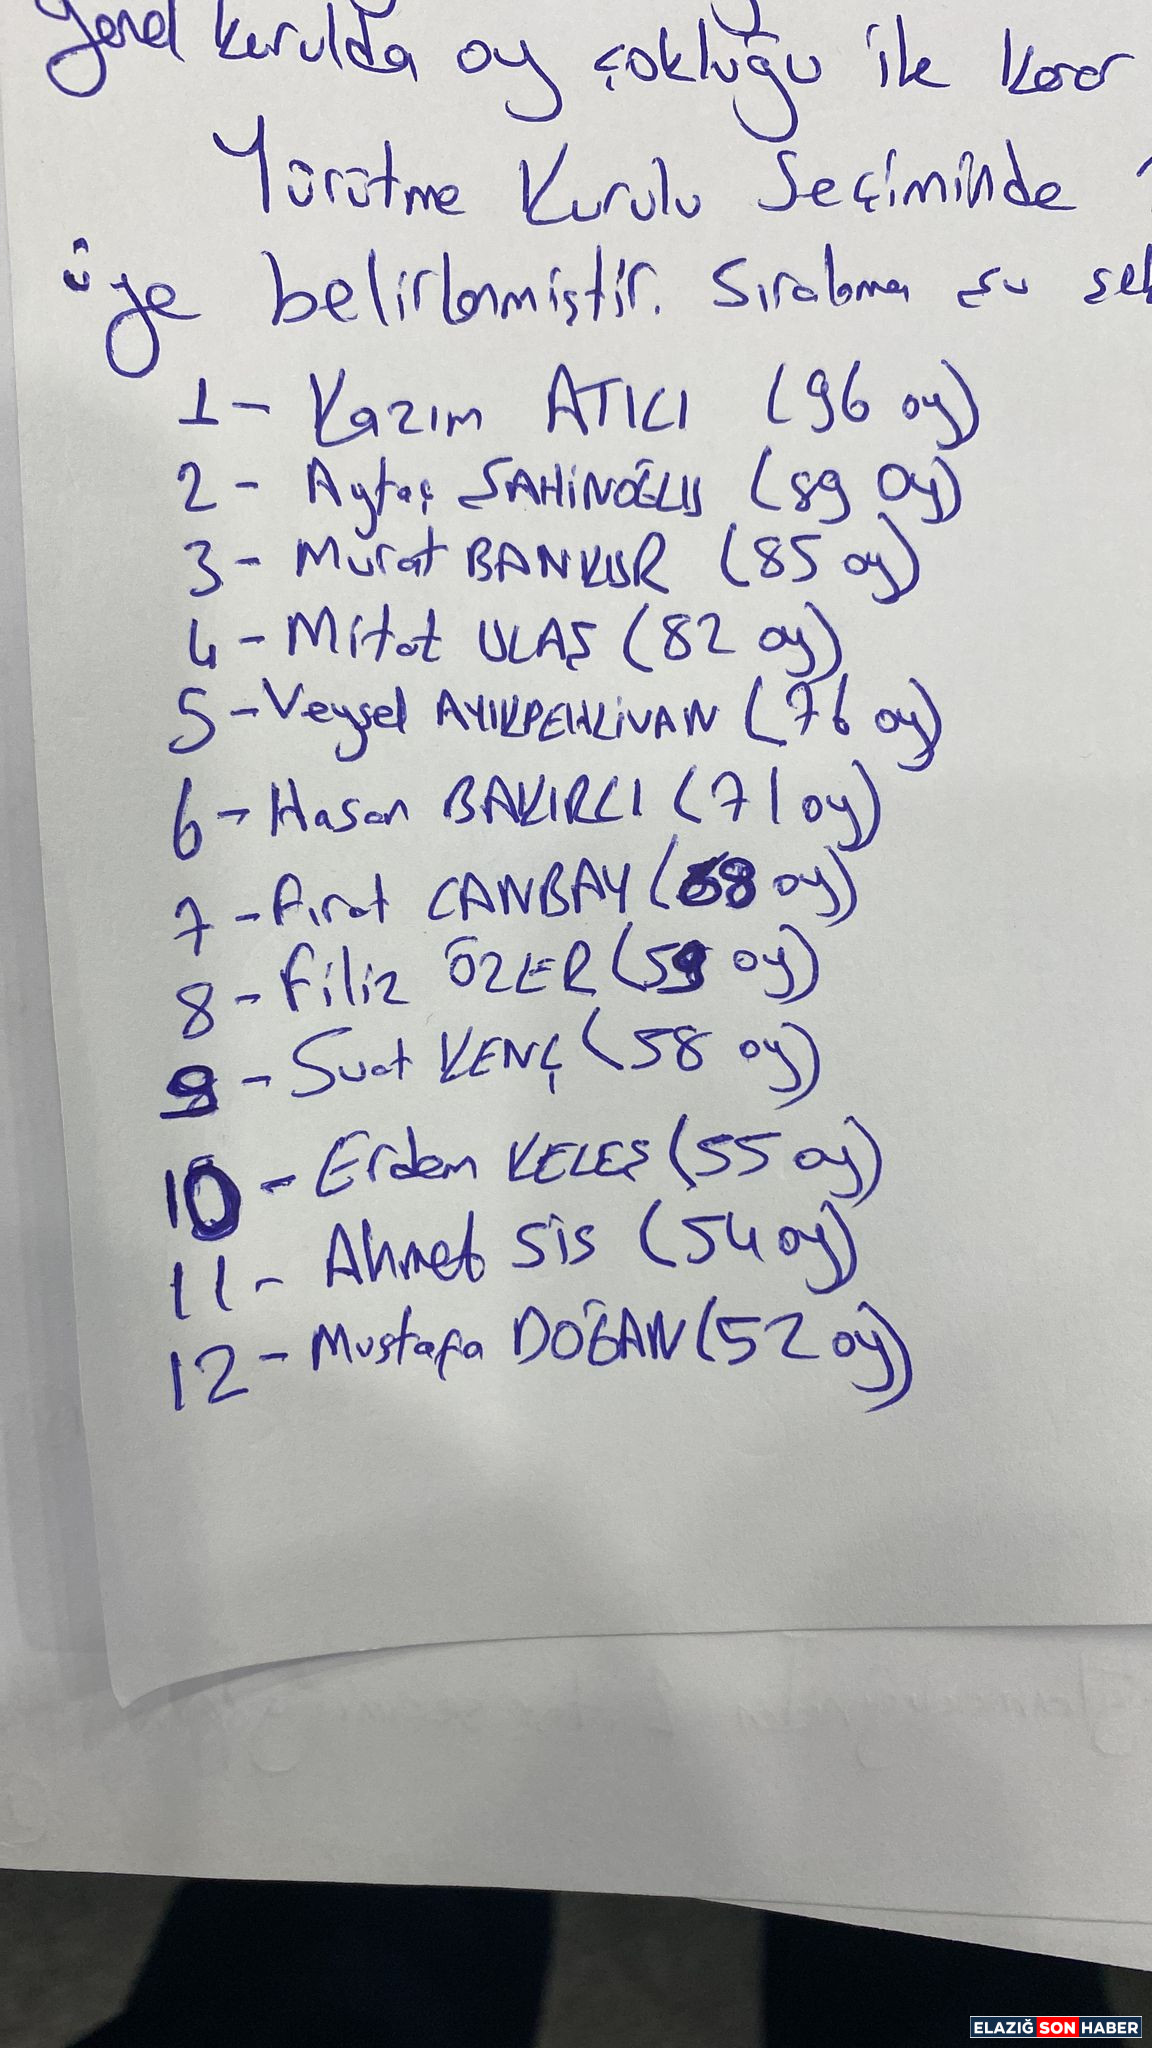 genel kurulda oy çokluğu ile karar
Yürütme Kurulu Seçiminde
üye belirlenmiştir. Sıralama şu şek
1- Kazım ATICI (96 oy)
2- Aytaç ŞAHİNOĞLU (89 oy)
3- Murat BANKUR (85 oy)
4- Mitat ULAŞ (82 oy)
5- Veysel AYIKPEHLİVAN (76 oy)
6- Hasan BAKIRCI (71 oy)
7- Fırat CANBAY (68 oy)
8- Filiz ÖZER (59 oy)
9- Suat KENÇ (58 oy)
10- Erdem KELEŞ (55 oy)
11- Ahmet SİS (54 oy)
12- Mustafa DOĞAN (52 oy)
ELAZIĞ SON HABER